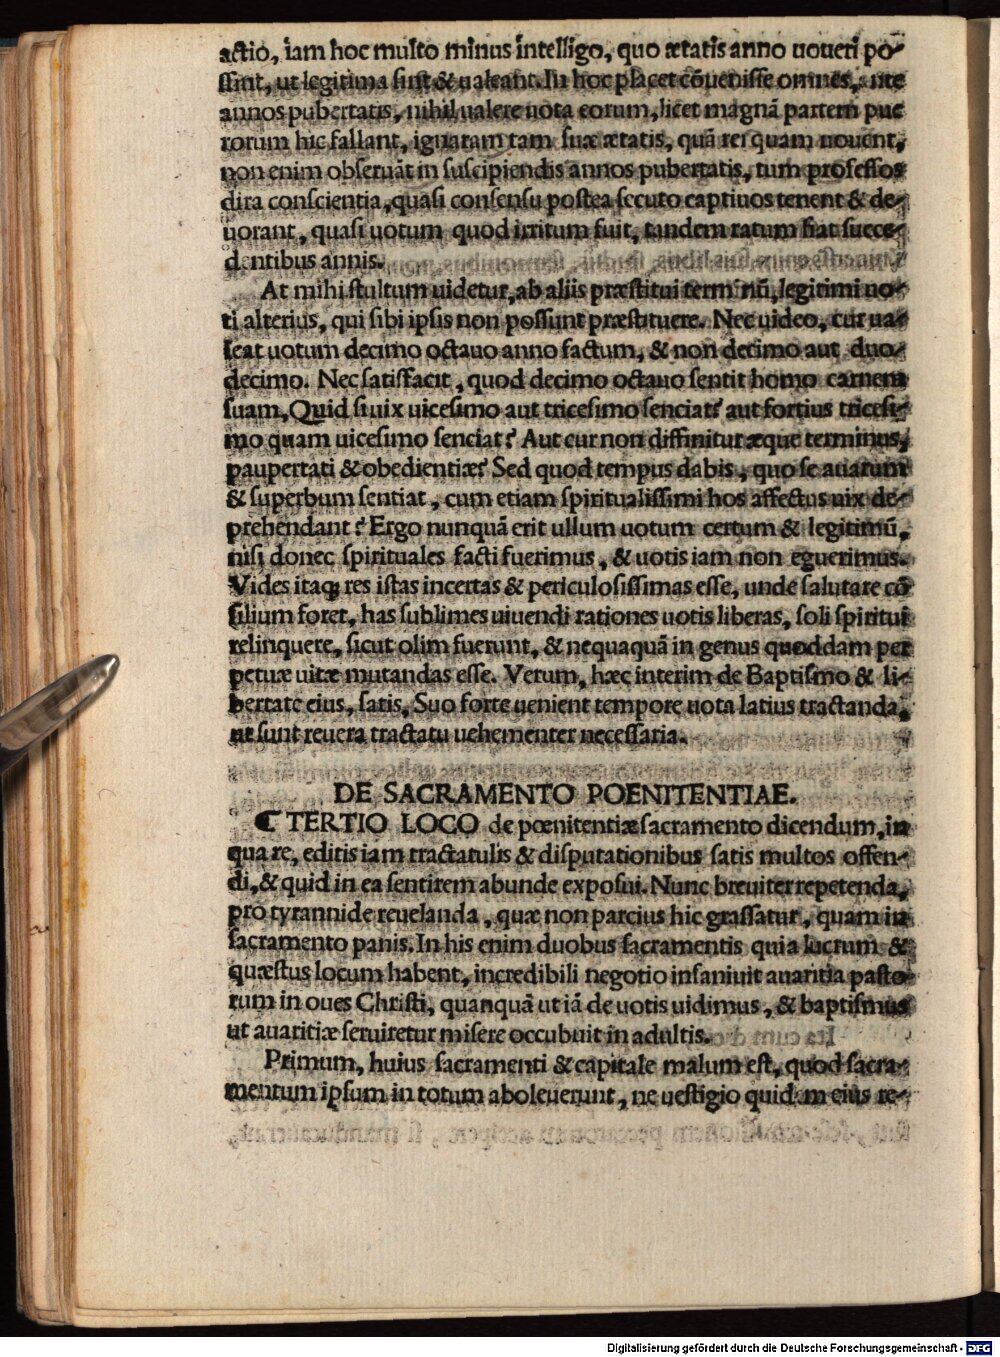 actio, iam hoc multo minus intelligo, quo ætatis anno uoueri pos-
sint, ut legitima sint & ualeant. In hoc placet cõuenisse omnes, ante
annos pubertatis, nihil ualere uota eorum, licet magnã partem pue
rorum hic fallant, ignaram tam suæ ætatis, quã rei quam uouent,
non enim obseruãt in suscipiendis annos pubertatis, tum professos
dira conscientia, quasi consensu postea secuto captiuos tenent & de-
uorant, quasi uotum quod irritum fuit, tandem ratum fiat succe-
dentibus annis.
At mihi stultum uidetur, ab aliis præstitui terminũ, legitimi uo-
ti alterius, qui sibi ipsis non possunt præstituere. Nec uideo, cur ua-
leat uotum decimo octauo anno factum, & non decimo aut duo-
decimo. Nec satisfacit, quod decimo octauo sentit homo carnem
suam, Quid si uix uicesimo aut tricesimo senciat? aut fortius tricesi-
mo quam uicesimo senciat? Aut cur non diffinitur æque terminus,
paupertati & obedientiæ? Sed quod tempus dabis, quo se auarum
& superbum sentiat, cum etiam spiritualissimi hos affectus uix de-
prehendant? Ergo nunquã erit ullum uotum certum & legitimũ,
nisi donec spirituales facti fuerimus, & uotis iam non eguerimus.
Vides itaq; res istas incertas & periculosissimas esse, unde salutare cõ
silium foret, has sublimes uiuendi rationes uotis liberas, soli spiritui
relinquere, sicut olim fuerunt, & nequaquã in genus quoddam per
petuæ uitæ mutandas esse. Verum, hæc interim de Baptismo & li-
bertate eius, satis, Suo forte uenient tempore uota latius tractanda,
ut sunt reuera tractatu uehementer necessaria.
DE SACRAMENTO POENITENTIAE.
¶ TERTIO LOCO de pœnitentiæ sacramento dicendum, in
qua re, editis iam tractatulis & disputationibus satis multos offen-
di, & quid in ea sentirem abunde exposui. Nunc breuiter repetenda,
pro tyrannide reuelanda, quæ non parcius hic grassatur, quam in
sacramento panis. In his enim duobus sacramentis quia lucrum &
quæstus locum habent, incredibili negotio insaniuit auaritia pasto-
rum in oues Christi, quanquã ut iã de uotis uidimus, & baptismus
ut auaritiæ seruiretur misere occubuit in adultis.
Primum, huius sacramenti & capitale malum est, quod sacra-
mentum ipsum in totum aboleuerunt, ne uestigio quidem eius re-
Digitalisierung gefördert durch die Deutsche Forschungsgemeinschaft - DFG